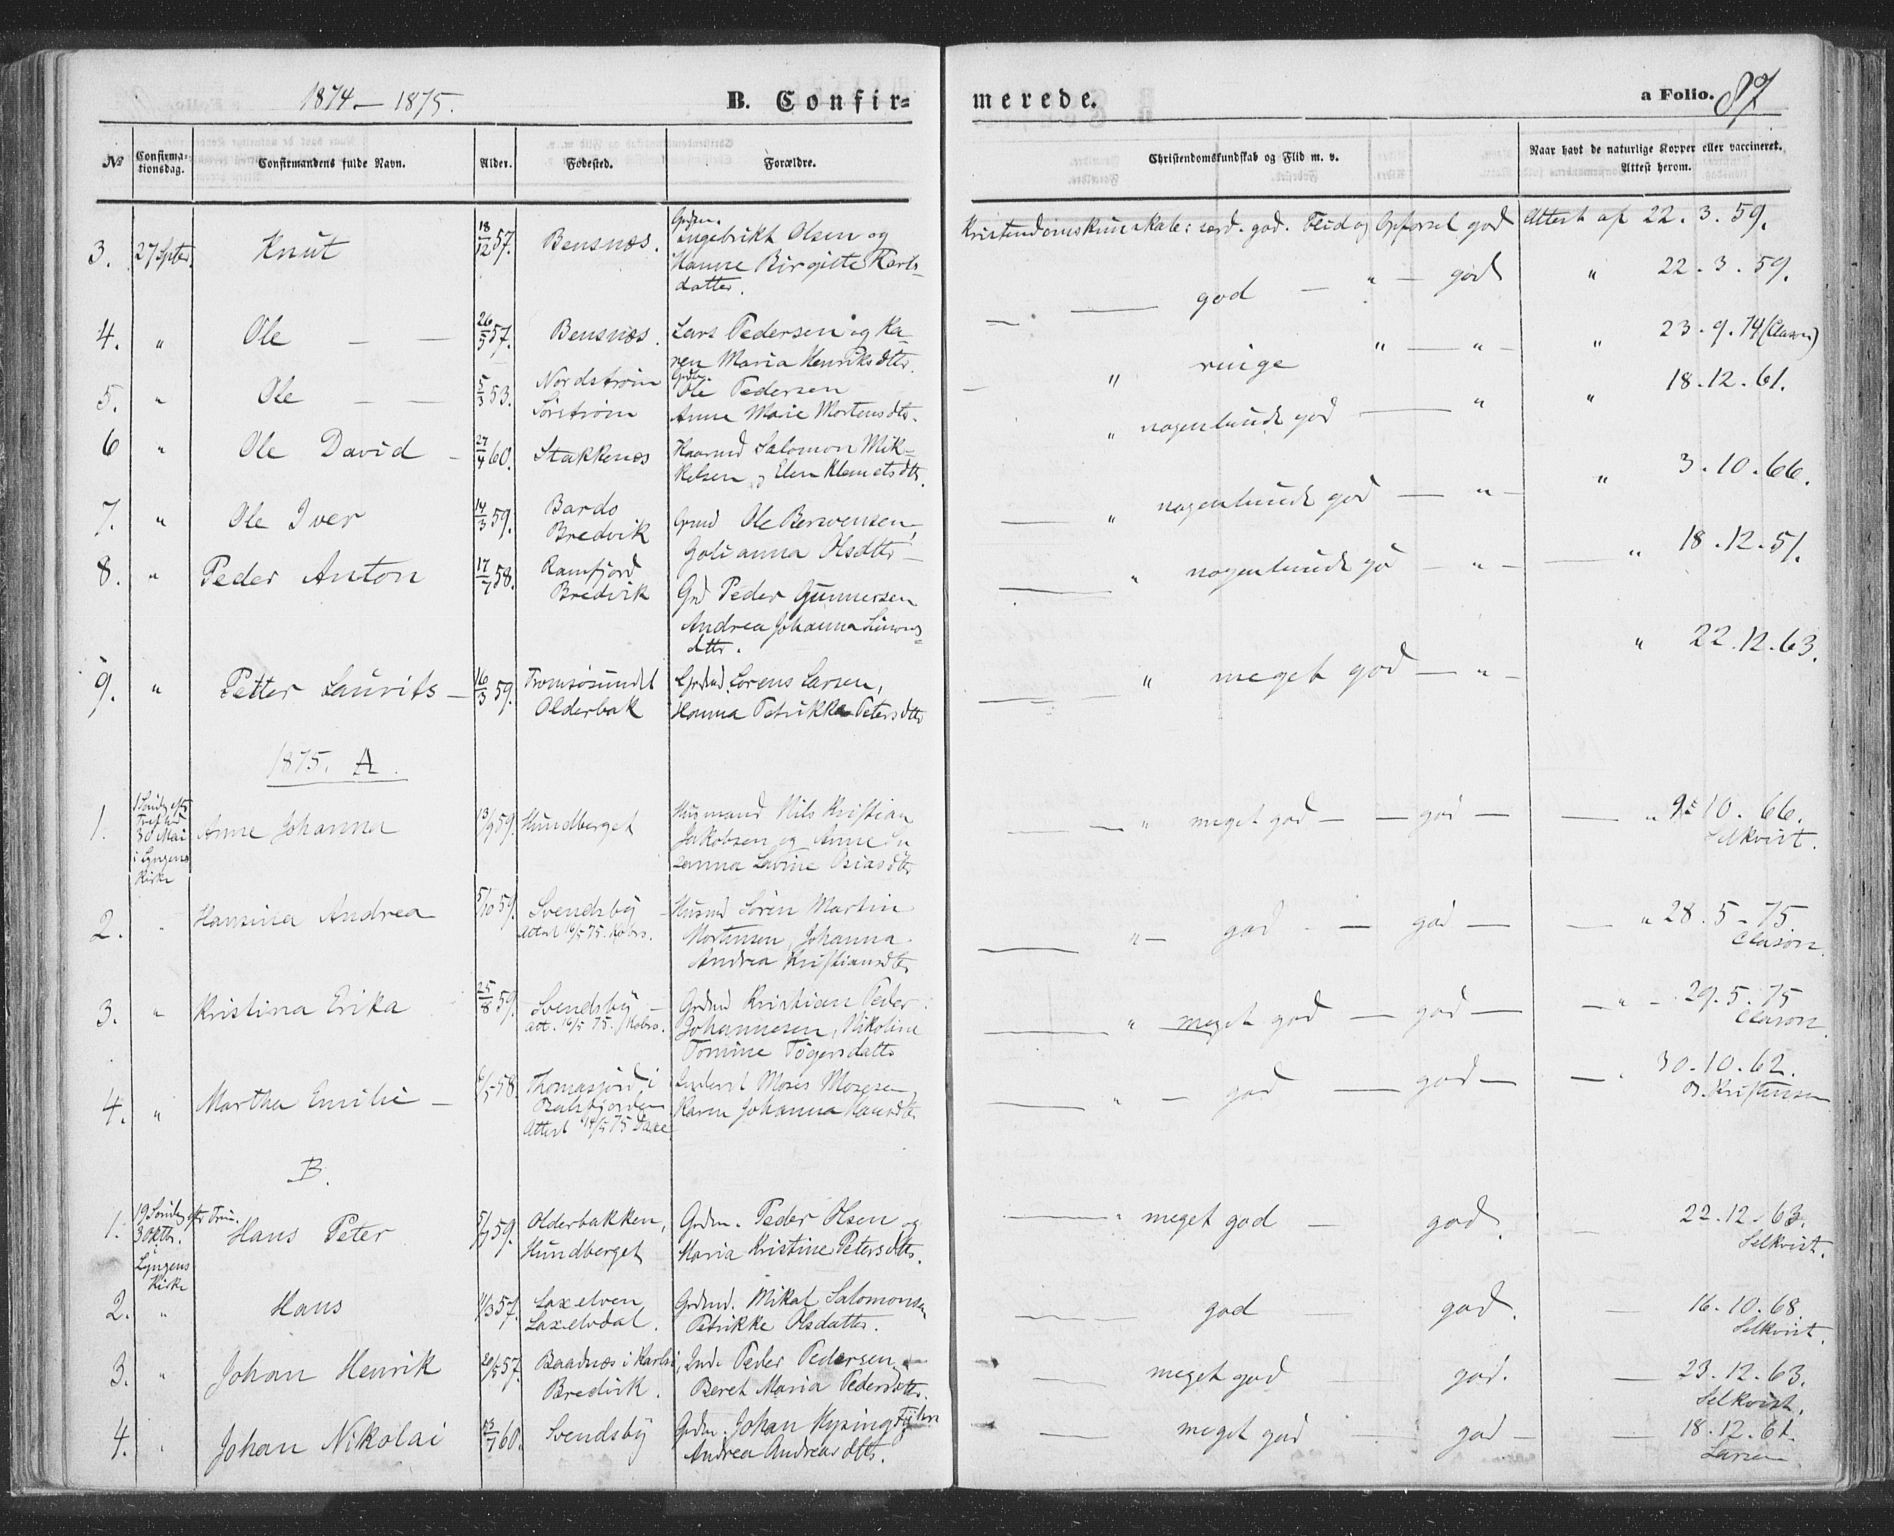 1874 – 1875.
B. Confir=
merede.
a Folio. 87
No
Confirma-
tionsdag.
Confirmandens fulde Navn.
Alder.
Fødested.
Forældre.
Christendomskundskab og Flid m. v.
Naar havt de naturlige Kopper eller vaccineret.
Attest herom.
3. 27 Spter. Knut 18/12 57. Bensnæs. Grdm.
Ingebrikt Olsen og
Hanne Birgitte Karls-
datter.
Kristendomskundskab: særd. god. Flid og Opførsel god Attest af 22.3.59.
4. " Ole — — 26/5 57. Bensnæs. Lars Pedersen og Ka-
ren Maria Henriksdttr.
— god — " — god " 22.3.59.
5. " Ole — — 5/3 53. Nordstrøm
Sørstrøm
Ole Pedersen
Anne Marie Mortensdtr.
— " ringe " — " — " 23.9.74 (Clason)
6 " Ole David – 27/4 60. Stakkenæs Salomon Mik-
kelsen og Elen Klemetsdtr.
" nogenlunde god — " " 18.12.61.
7. " Ole Iver 14/3 59. Bardo
Bredvik
Grmd Ole Berwensen,
Golianna Olsdttr –
— " nogenlunde god — " — " 3.10.66.
8. " Peder Anton 17/7 58. Ramfjord
Bredvik
Grd Peder Gunnersen
Andrea Johanna Simons=
dttr.
— " nogenlunde go — " — " 18.12.51.
9. " Petter Laurits — 16/3 59. Tromsøsundet
Olderbak
Grdmd. Lorens Larsen,
Hanna Petrikka Petersdttr
— " meget god — " — " 22.12.63.
1875. A.
1. 1 Søndg eftr
Trefold
30 Mai
i Lyngens
Kirke
Anne Johanna 13/9 59. Hundberget Husmand Nils Kristian
Jakobsen og Anne Su
sanna Lovine Osiasdttr
— — " meget god — — god — — " 10.66.
Selkvist.
2. " Hansina Andrea 5/10 59. Svendsby –
Attest 16/5 75. Kobro.
Husmd Søren Martin
Mortensen, Johanna
Andrea Kristiansdtr
— " — god — god — — " 28.5–75
Clason.
3. " Kristina Erika 25/8 59. Svendsby –
att. 16/5 75. / Kobro.
Grdmd Kristian Peder
Johannesen, Nikoline
Tomine Tøgersdattr
— " meget god — god — — " – 29.5.75
Clason.
4. " Martha Emilie — 6/5 58. Thomasjord i
Balsfjorden
Attest 14/5 75
Moses Mosesen
Karen Johanna Hansdtr
— " — god — god — — 30.10.62.
Kristensen
B.
1. 19 Søndg eftr Trin.
3 Oktbr.
i
Lyngens
Kirke
Hans Peter 5/7 59. Olderbakken,
Hundberget
Grdm. Peder Olsen og
Maria Kristine Petersdttr.
— " meget god — god. — 22.12.63.
Selkvist.
2. " Hans 11/3 57. Laxelven
Laxelvdal.
Grdmd. Mikal Salomonsen
Petrikke Olsdatter.
— — god — god. — 16.10.68
Selkvist.
3. " Johan Henrik 20/5 57. Baadnæs i Karlsø,
Bredvik.
Inds Peder Pedersen,
Beret Maria Pedersdttr.
— meget god — god. — 23.12.63.
Selkvist.
4. " Johan Nikolai 60. Svendsby Grdm. Johan Kysing Fyhn
Andrea Andreasdttr.
— meget god — god — — 18.12.61.
Larsen